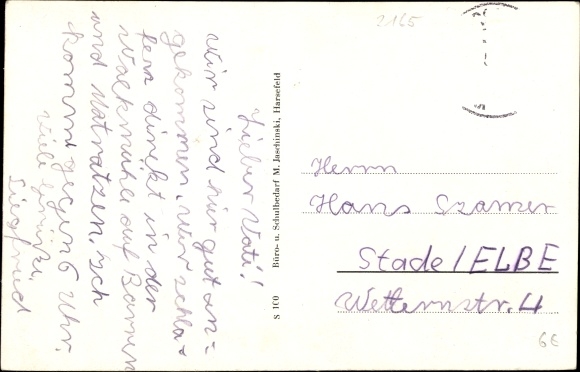 Lieber Vati!
Wir sind hir gut an=
gekommen. Wir schla=
fen direkt in der
Walkmühle auf Barren
und Matratzen. Ich
komme gegen 6 Uhr.
Viele Grüße.
Siegfried
S 100 Büro- u. Schulbedarf M. Jaschinski, Harsefeld
2165
Herrn
Hans Szamer
Stade/ELBE
Wetternstr. 4
6€